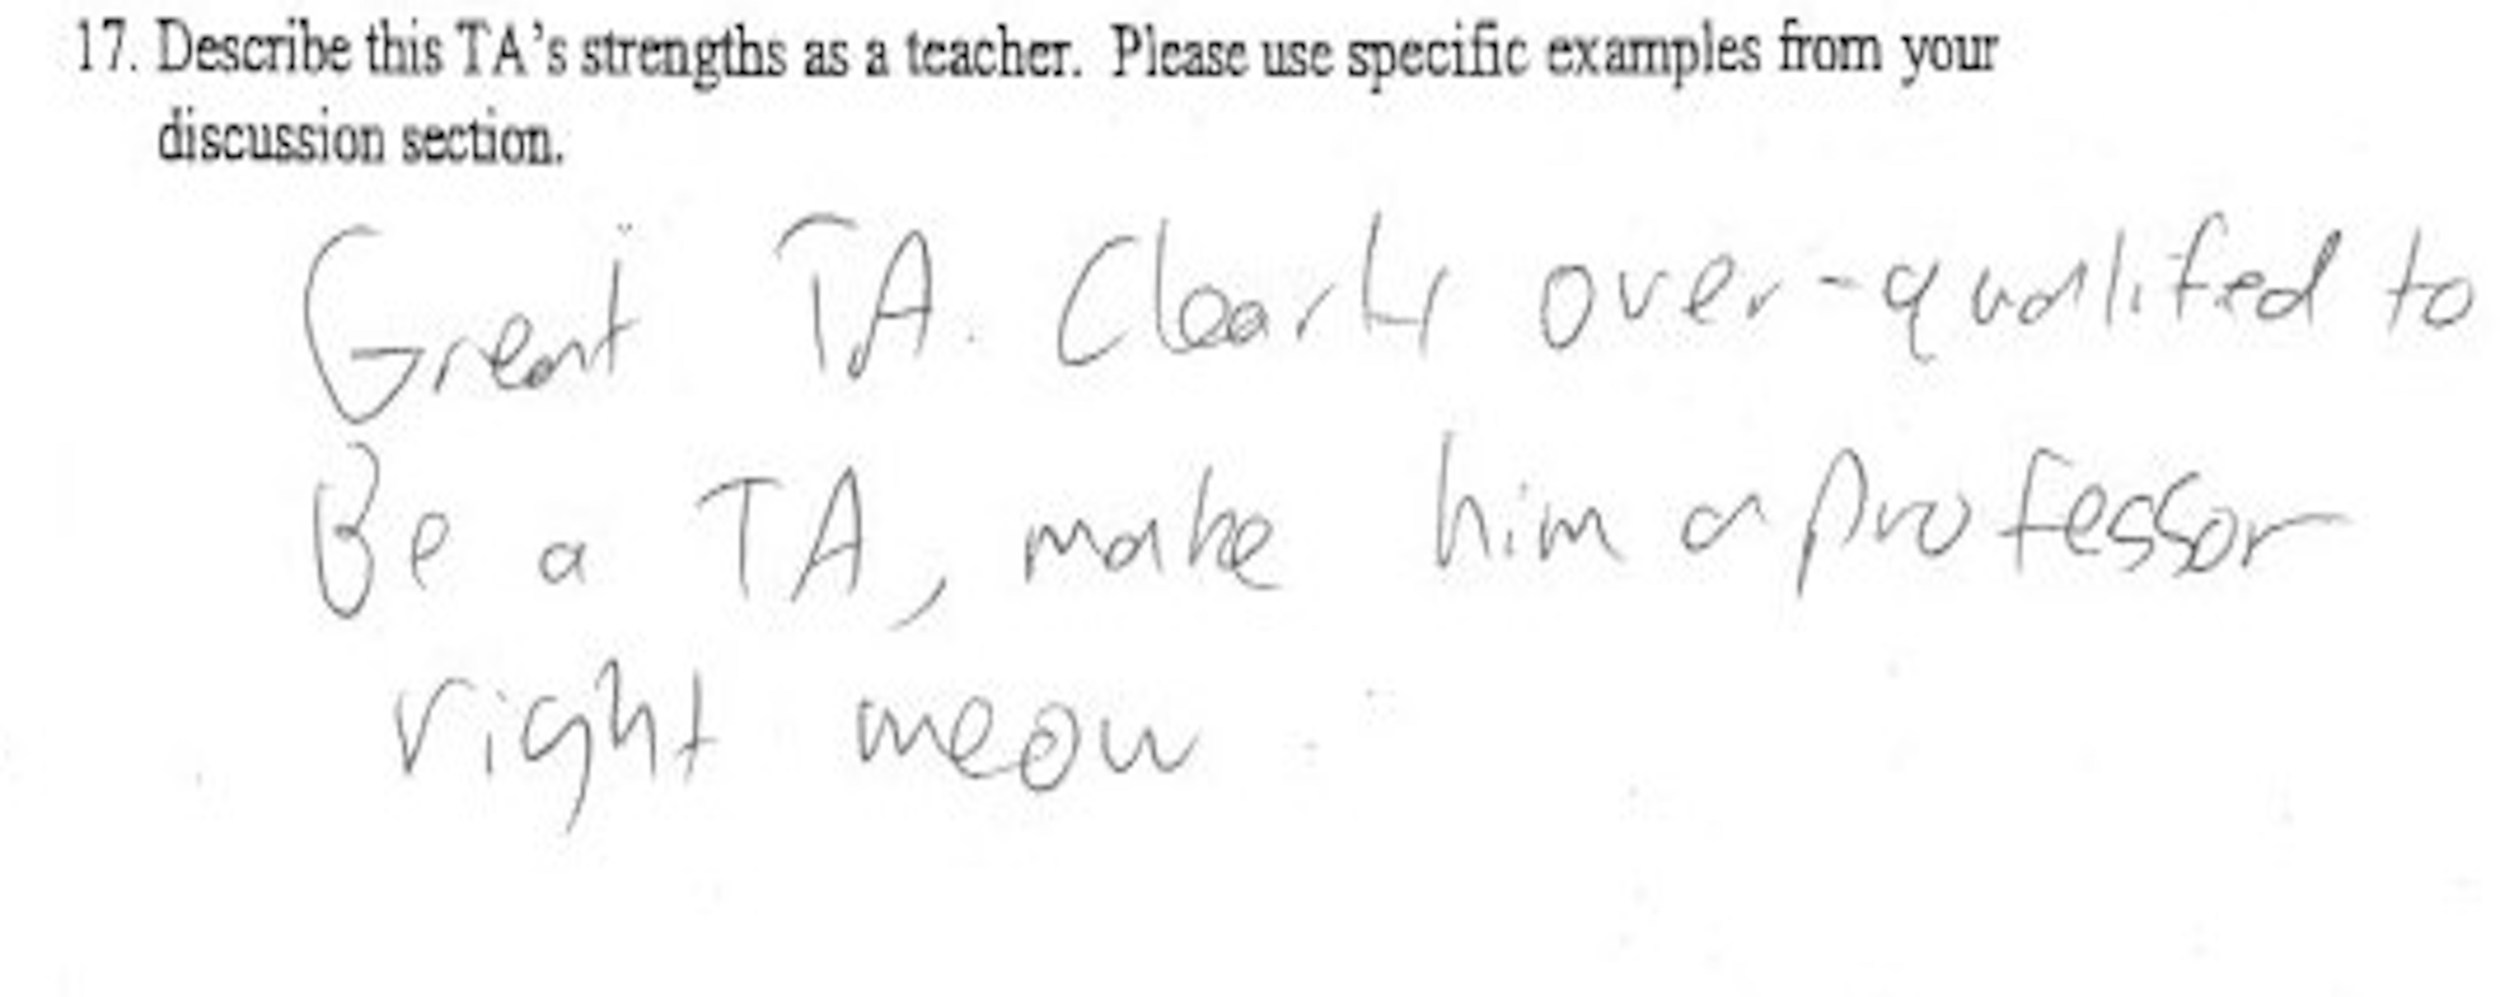 17. Describe this TA's strengths as a teacher. Please use specific examples from your
discussion section.
Great TA. Clearly over-qualifed to
Be a TA, make him a professor
right meow